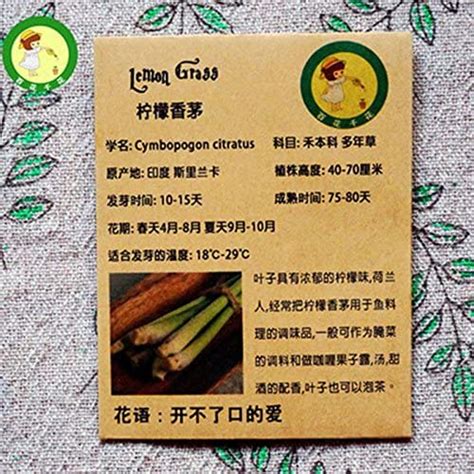 Lemon Grass
柠檬香茅
百花千花
学名: Cymbopogon citratus
科目: 禾本科 多年草
原产地: 印度 斯里兰卡
植株高度: 40-70厘米
发芽时间: 10-15天
成熟时间: 75-80天
花期: 春天4月-8月 夏天9月-10月
适合发芽的温度: 18℃-29℃
叶子具有浓郁的柠檬味,荷兰
人,经常把柠檬香茅用于鱼料
理的调味品,一般可作为腌菜
的调料和做咖喱果子露,汤,甜
酒的配香,叶子也可以泡茶。
花语：开不了口的爱